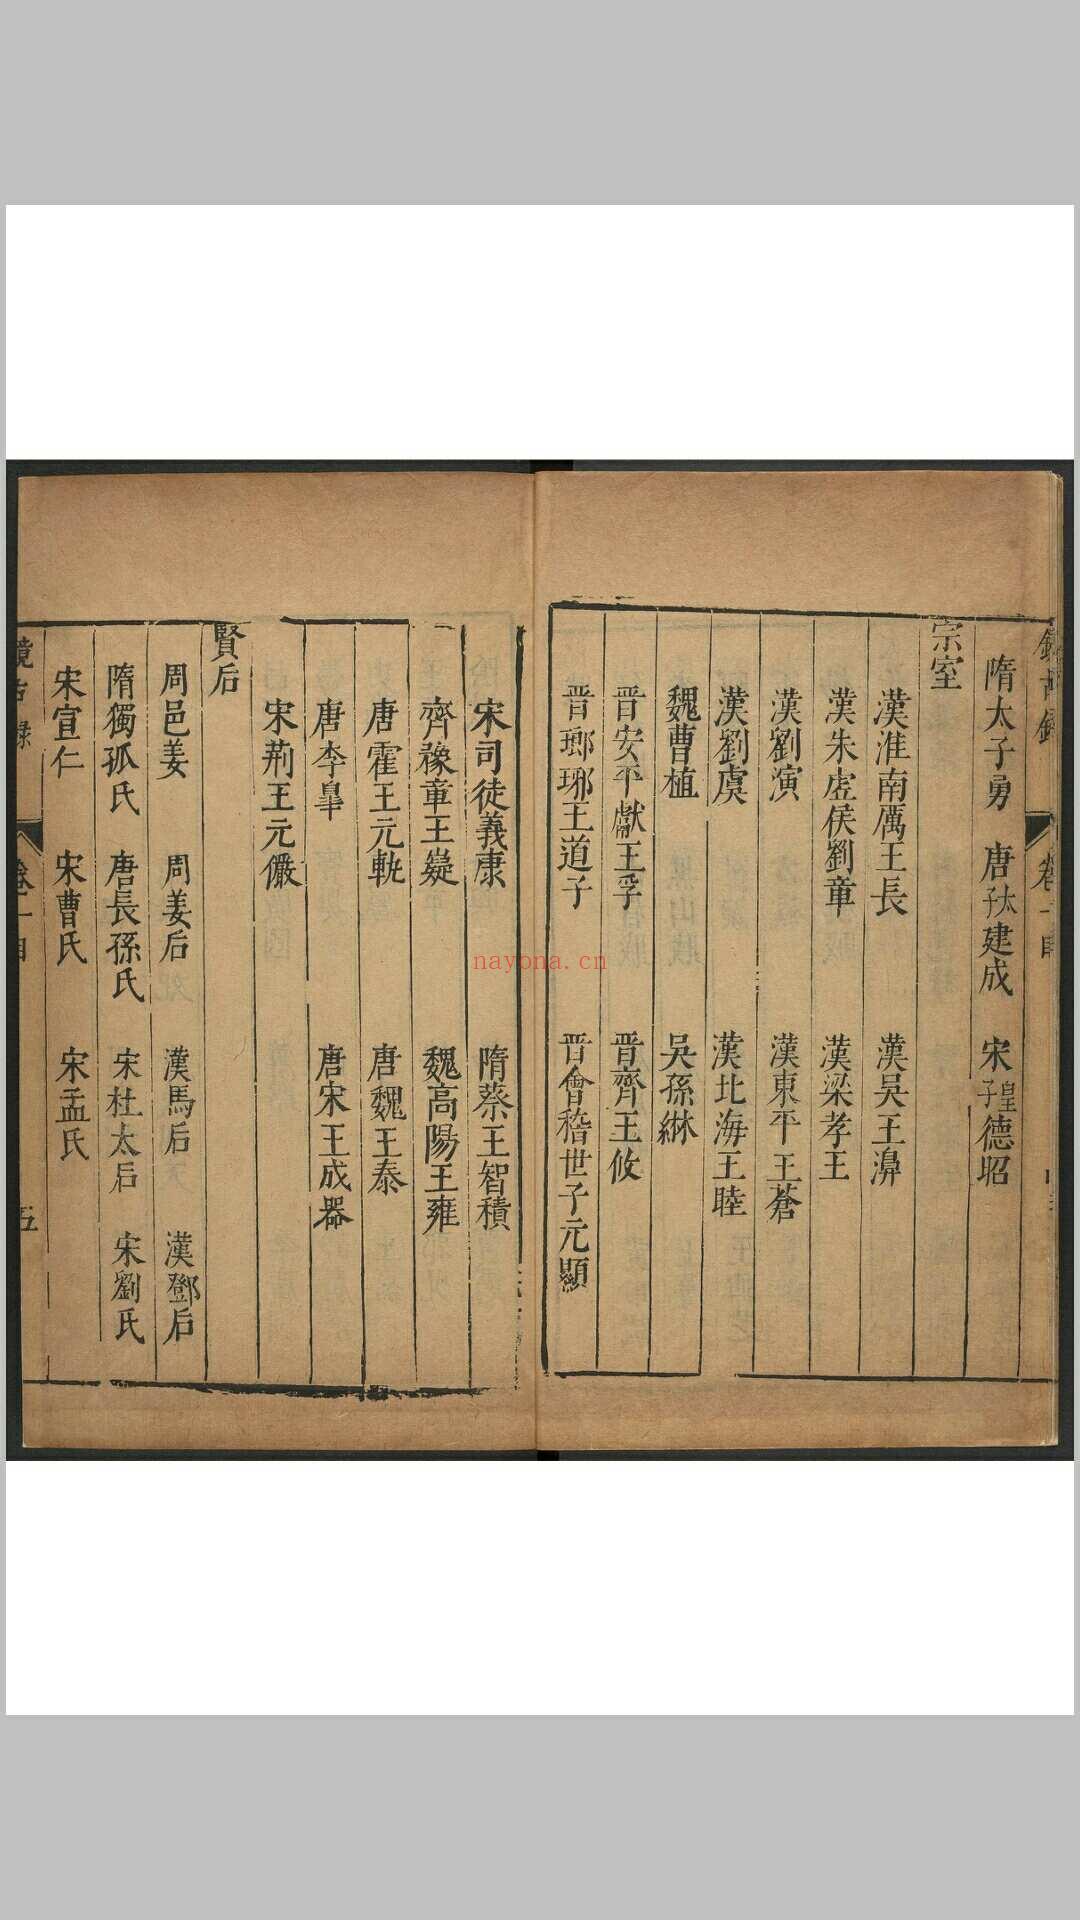 隋太子勇 唐太子建成 宋皇子德昭
宗室
漢淮南厲王長 漢吳王濞
漢朱虛侯劉章 漢梁孝王
漢劉演 漢東平王蒼
漢劉虞 漢北海王睦
魏曹植 吳孫綝
晉安平獻王孚 晉齊王攸
晉瑯琊王道子 晉會稽世子元顯
宋司徒義康 隋蔡王智積
齊豫章王嶷 魏高陽王雍
唐霍王元軌 唐魏王泰
唐李臯 唐宋王成器
宋荆王元儼
賢后
周邑姜 周姜后 漢馬后 漢鄧后
隋獨孤氏 唐長孫氏 宋杜太后 宋劉氏
宋宣仁 宋曹氏 宋孟氏
鏡古錄 卷一目 五
nayona.cn